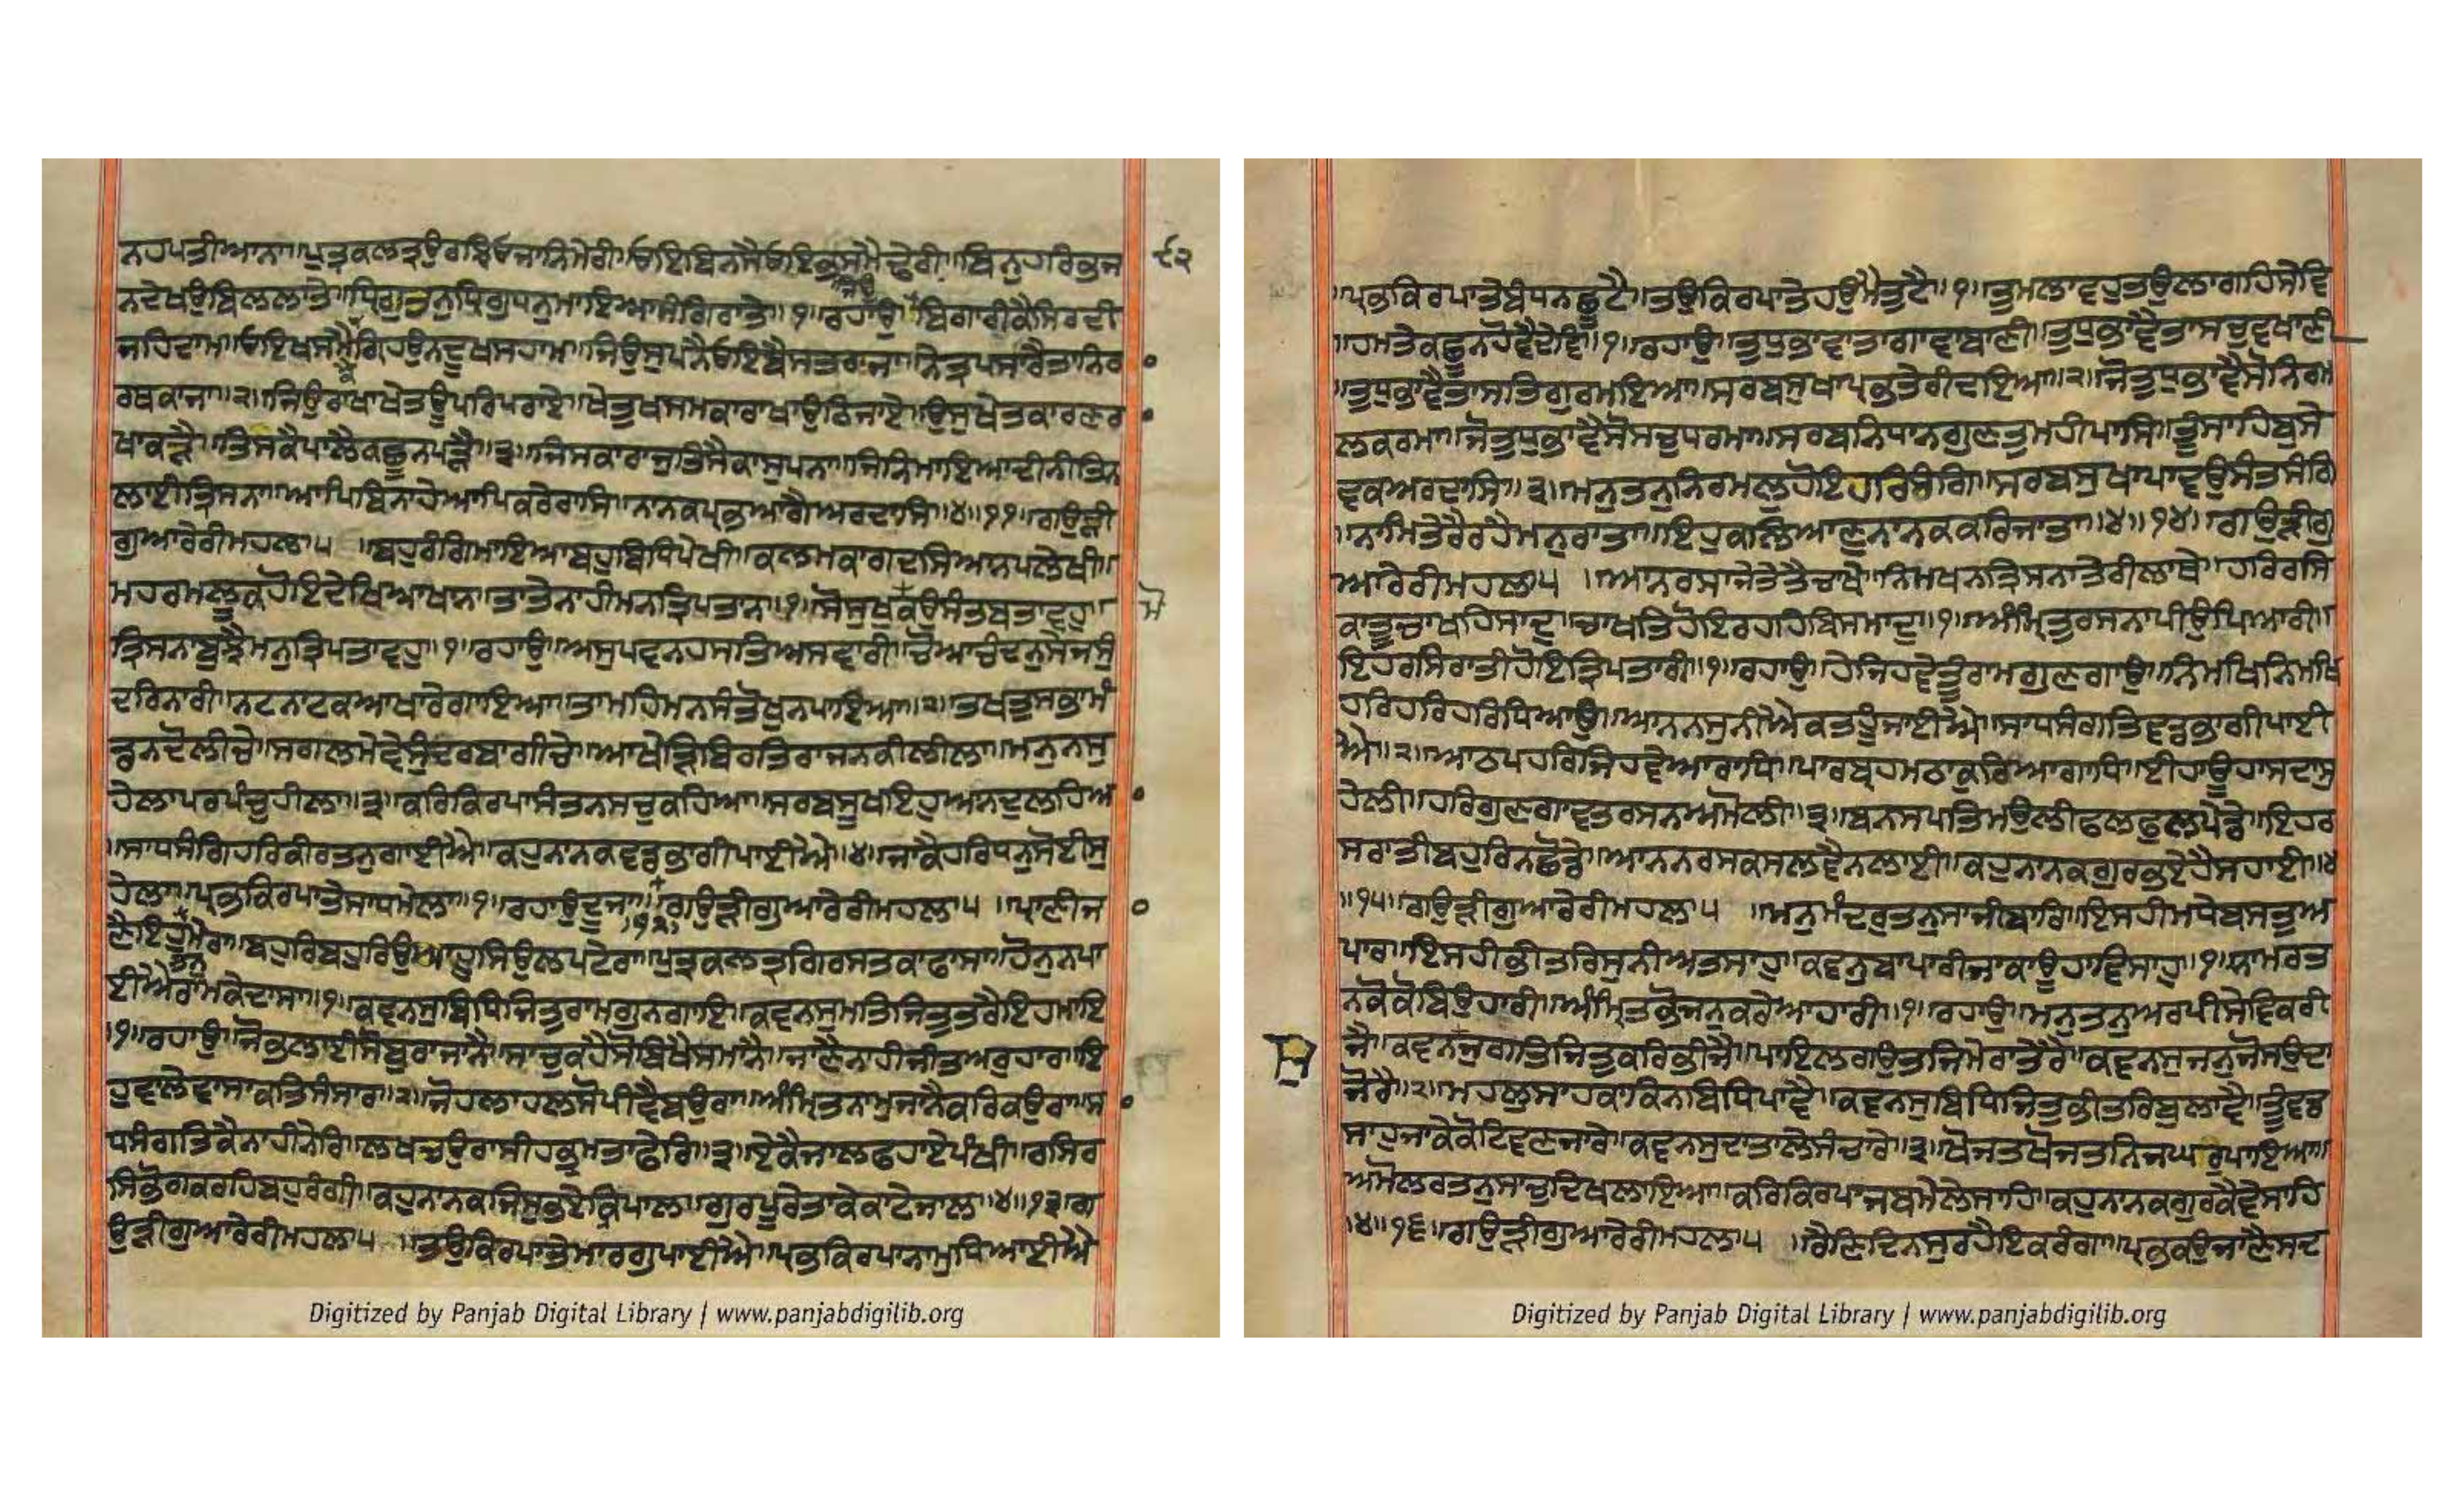 ਨਹਪਤੀਆਨਾ॥ਪੁਤ੍ਰਕਲਤ੍ਰਉਰਝਿਓਜਾਨਿਮੇਰੀ॥ਓਇਬਿਨਸੈਓਇਭਸਮੈਢੇਰੀ॥ਬਿਨੁਹਰਿਭਜ
੯੨
ਨਦੇਖਉਬਿਲਲਾਤੇ॥ਧ੍ਰਿਗੁਤਨੁਧ੍ਰਿਗੁਧਨੁਮਾਇਆਸੰਗਿਰਾਤੇ॥੧॥ਰਹਾਉ॥ਬਿਗਾਰੀਕੈਸਿਰਦੀ
ਜਹਿਦਾਮ॥ਓਇਖਸਮੈਗ੍ਰਿਹਉਨਦੂਖਸਹਾਮ॥ਜਿਉਸੁਪਨੈਓਇਬੈਸਤਰਾਜਾ॥ਨੇਤ੍ਰਪਸਾਰੈਤਾਨਿਰ
ਰਥਕਾਜਾ॥੨॥ਜਿਉਰਾਖਾਖੇਤਊਪਰਿਪਰਾਏ॥ਖੇਤੁਖਸਮਕਾਰਾਖਾਉਠਿਜਾਏ॥ਉਸੁਖੇਤਕਾਰਣਰ
ਖਾਕੜੈ॥ਤਿਸਕੈਪਾਲੈਕਛੂਨਪੜੈ॥੩॥ਜਿਸਕਾਰਾਜੁਤਿਸੈਕਾਸੁਪਨਾ॥ਜਿਨਿਮਾਇਆਦੀਨੀਤਿਨ
ਲਾਈਤ੍ਰਿਸਨਾ॥ਆਪਿਬਿਨਾਹੇਆਪਿਕਰੇਰਾਸਿ॥ਨਾਨਕਪ੍ਰਭਆਗੈਅਰਦਾਸਿ॥੪॥੧੧॥ਗਉੜੀ
ਗੁਆਰੇਰੀਮਹਲਾ੫ ॥ਬਹੁਰੰਗਿਮਾਇਆਬਹੁਬਿਧਿਪੇਖੀ॥ਕਲਮਕਾਗਦਸਿਆਨਪਲੇਖੀ॥
ਮਹਰਮਲੂਕਹੋਇਦੇਖਿਆਖਾਨ॥ਤਾਤੇਨਾਹੀਮਨਤ੍ਰਿਪਤਾਨ॥੧॥ਸੋਸੁਖੁਕਉਸੰਤਬਤਾਵਹੁ॥
ਤ੍ਰਿਸਨਾਬੂਝੈਮਨੁਤ੍ਰਿਪਤਾਵਹੁ॥੧॥ਰਹਾਉ॥ਅਸੁਪਵਨਹਸਤਿਅਸਵਾਰੀ॥ਚੋਆਚੰਦਨੁਸੇਜਸੁੰ
ਦਰਿਨਾਰੀ॥ਨਟਨਾਟਕਆਖਾਰੇਗਾਇਆ॥ਤਾਮਹਿਮਨਸੰਤੋਖੁਨਪਾਇਆ॥੨॥ਤਖਤੁਸਭਾਮੰ
ਡਨਦੋਲੀਚੇ॥ਸਗਲਮੇਵੇਸੁੰਦਰਬਾਗੀਚੇ॥ਆਖੇੜਬਿਰਤਿਰਾਜਨਕੀਲੀਲਾ॥ਮਨੁਨਸੁ
ਹੇਲਾਪਰਪੰਚੁਹੀਲਾ॥੩॥ਕਰਿਕਿਰਪਾਸੰਤਨਸਚੁਕਹਿਆ॥ਸਰਬਸੂਖਇਹੁਅਨਦੁਲਹਿਆ
॥ਸਾਧਸੰਗਿਹਰਿਕੀਰਤਨੁਗਾਈਐ॥ਕਹੁਨਾਨਕਵਡਭਾਗੀਪਾਈਐ॥੪॥ਜਾਕੈਹਰਿਧਨੁਸੋਈਸੁ
ਹੇਲਾ॥ਪ੍ਰਭਕਿਰਪਾਤੇਸਾਧਮੇਲਾ॥੧॥ਰਹਾਉਦੂਜਾ॥੧੨॥ਗਉੜੀਗੁਆਰੇਰੀਮਹਲਾ੫ ॥ਪ੍ਰਾਣੀਜ
ਣੈਇਹੁਤਨੁਮੇਰਾ॥ਬਹੁਰਿਬਹੁਰਿਉਆਹੂਸਿਉਲਪਟੇਰਾ॥ਪੁਤ੍ਰਕਲਤ੍ਰਗਿਰਸਤਕਾਫਾਸਾ॥ਹੋਨੁਨਪਾ
ਈਐਰਾਮਕੇਦਾਸਾ॥੧॥ਕਵਨਸੁਬਿਧਿਜਿਤੁਰਾਮਗੁਨਗਾਇ॥ਕਵਨਸੁਮਤਿਜਿਤੁਤਰੈਇਹਮਾਇ
॥੧॥ਰਹਾਉ॥ਜੋਭਲਾਈਸੋਬੁਰਾਜਾਨੈ॥ਸਾਚੁਕਹੈਸੋਬਿਖੈਸਮਾਨੈ॥ਜਾਣੈਨਾਹੀਜੀਤਅਰੁਹਾਰ॥ਇ
ਹੁਵਲੇਵਾਸਾਕਤਸੰਸਾਰ॥੨॥ਜੋਹਲਾਹਲਸੋਪੀਵੈਬਉਰਾ॥ਅੰਮ੍ਰਿਤਨਾਮੁਜਾਨੈਕਰਿਕਉਰਾ॥ਸਾ
ਧਸੰਗਤਿਕੈਨਾਹੀਨੇਰਿ॥ਲਖਚਉਰਾਸੀਹਭ੍ਰਮਤਾਫੇਰਿ॥੩॥ਏਕੈਜਾਲਫਹਾਏਪੰਖੀ॥ਰਸਿਰ
ਸਿਭੋਗਕਰਹਿਬਹੁਰੰਗੀ॥ਕਹੁਨਾਨਕਜਿਸੁਭਏਕ੍ਰਿਪਾਲ॥ਗੁਰਪੂਰੇਤਾਕੇਕਾਟੇਜਾਲ॥੪॥੧੩॥ਗ
ਉੜੀਗੁਆਰੇਰੀਮਹਲਾ੫ ॥ਤਉਕਿਰਪਾਤੇਮਾਰਗੁਪਾਈਐ॥ਪ੍ਰਭਕਿਰਪਾਨਾਮੁਧਿਆਈਐ
Digitized by Panjab Digital Library | www.panjabdigilib.org
॥ਪ੍ਰਭਕਿਰਪਾਤੇਬੰਧਨਛੂਟੈ॥ਤਉਕਿਰਪਾਤੇਹਉਮੈਤੂਟੈ॥੧॥ਤੁਮਲਾਵਹੁਤਉਲਾਗਹਿਸੇਵਿ
॥ਹਮਤੇਕਛੂਨਹੋਵੈਦੇਵ॥੧॥ਰਹਾਉ॥ਤੁਧੁਭਾਵੈਤਾਗਾਵਾਬਾਣੀ॥ਤੁਧੁਭਾਵੈਤਾਸਚੁਵਖਾਣੀ
॥ਤੁਧੁਭਾਵੈਤਾਸਤਿਗੁਰਮਇਆ॥ਸਰਬਸੁਖਾਪ੍ਰਭਤੇਰੀਦਇਆ॥੨॥ਜੋਤੁਧੁਭਾਵੈਸੋਨਿਰਮ
ਲਕਰਮਾ॥ਜੋਤੁਧੁਭਾਵੈਸੋਸਚੁਧਰਮਾ॥ਸਰਬਨਿਧਾਨਗੁਣਤੁਮਹੀਪਾਸਿ॥ਤੂੰਸਾਹਿਬੁਸੇ
ਵਕਅਰਦਾਸਿ॥੩॥ਮਨੁਤਨੁਨਿਰਮਲੁਹੋਇਹਰਿਰੰਗਿ॥ਸਰਬਸੁਖਾਪਾਵਉਸਤਸੰਗਿ
॥ਨਾਮਿਤੇਰੈਰਹੈਮਨੁਰਾਤਾ॥ਇਹੁਕਲਿਆਣੁਨਾਨਕਕਰਿਜਾਤਾ॥੪॥੧੪॥ਗਉੜੀਗੁ
ਆਰੇਰੀਮਹਲਾ੫ ॥ਆਨਰਸਾਜੇਤੇਤੈਚਾਖੇ॥ਨਿਮਖਨਤ੍ਰਿਸਨਾਤੇਰੀਲਾਥੇ॥ਹਰਿਰਸ
ਕਾਤੂੰਚਾਖਹਿਸਾਦੁ॥ਚਾਖਤਹੋਇਰਹਹਿਬਿਸਮਾਦੁ॥੧॥ਅੰਮ੍ਰਿਤੁਰਸਨਾਪੀਉਪਿਆਰੀ॥
ਇਹਰਸਿਰਾਤੀਹੋਇਤ੍ਰਿਪਤਾਰੀ॥੧॥ਰਹਾਉ॥ਹੇਜਿਹਵੇਤੂੰਰਾਮਗੁਣਗਾਉ॥ਨਿਮਖਿਨਿਮਖਿ
ਹਰਿਹਰਿਹਰਿਧਿਆਉ॥ਆਨਨਸੁਨੀਐਕਤਹੂੰਜਾਈਐ॥ਸਾਧਸੰਗਤਿਵਡਭਾਗੀਪਾਈ
ਐ॥੨॥ਆਠਪਹਰਜਿਹਵੇਆਰਾਧਿ॥ਪਾਰਬ੍ਰਹਮਠਾਕੁਰਿਆਗਾਧਿ॥ਈਹਾਊਹਾਸਦਾਸੁ
ਹੇਲੀ॥ਹਰਿਗੁਣਗਾਵਤਰਸਨਅਮੋਲੀ॥੩॥ਬਨਸਪਤਿਮਉਲੀਫਲਫੁਲਪੇਡੇ॥ਇਹਰ
ਸਰਾਤੀਬਹੁਰਿਨਛੋਡੇ॥ਆਨਨਰਸਕਸਲਵੈਨਲਾਈ॥ਕਹੁਨਾਨਕਗੁਰਭਏਹੈਸਹਾਈ॥੪
॥੧੫॥ਗਉੜੀਗੁਆਰੇਰੀਮਹਲਾ੫ ॥ਮਨੁਮੰਦਰੁਤਨੁਸਾਜੀਬਾਰਿ॥ਇਸਹੀਮਧੇਬਸਤੁਅ
ਪਾਰ॥ਇਸਹੀਭੀਤਰਿਸੁਨੀਅਤਸਾਹੁ॥ਕਵਨੁਬਾਪਾਰੀਜਾਕਾਊਹਾਵਿਸਾਹੁ॥੧॥ਨਾਮਰਤ
ਨਕੋਕੋਬਿਉਹਾਰੀ॥ਅੰਮ੍ਰਿਤਭੋਜਨੁਕਰੇਆਹਾਰੀ॥੧॥ਰਹਾਉ॥ਮਨੁਤਨੁਅਰਪੀਸੇਵਕਰੀ
ਜੈ॥ਕਵਨਜੁਗਤਿਜਿਤੁਕਰਿਭੀਜੈ॥ਪਾਇਲਗਉਤਜਿਮੇਰਾਤੇਰੈ॥ਕਵਨਸੁਜਨੁਜੋਸਉਦਾ
ਜੋਰੈ॥੨॥ਮਹਲੁਸਾਹਕਾਕਿਨਬਿਧਿਪਾਵੈ॥ਕਵਨਸੁਬਿਧਿਜਿਤੁਭੀਤਰਿਬੁਲਾਵੈ॥ਤੂੰਵਡ
ਸਾਹੁਜਾਕੇਕੋਟਿਵਣਜਾਰੇ॥ਕਵਨਸੁਦਾਤਾਲੇਸੰਚਾਰੇ॥੩॥ਖੋਜਤਖੋਜਤਨਿਜਘਰੁਪਾਇਆ॥
ਅਮੋਲਰਤਨੁਸਾਚੁਦਿਖਲਾਇਆ॥ਕਰਿਕਿਰਪਾਜਬਮੇਲੇਸਾਹਿ॥ਕਹੁਨਾਨਕਗੁਰਕੈਵੇਸਾਹਿ
॥੪॥੧੬॥ਗਉੜੀਗੁਆਰੇਰੀਮਹਲਾ੫ ॥ਰੈਣਿਦਿਨਸੁਰਹੈਇਕਰੰਗਾ॥ਪ੍ਰਭਕਉਜਾਣੈਸਦ
Digitized by Panjab Digital Library | www.panjabdigilib.org